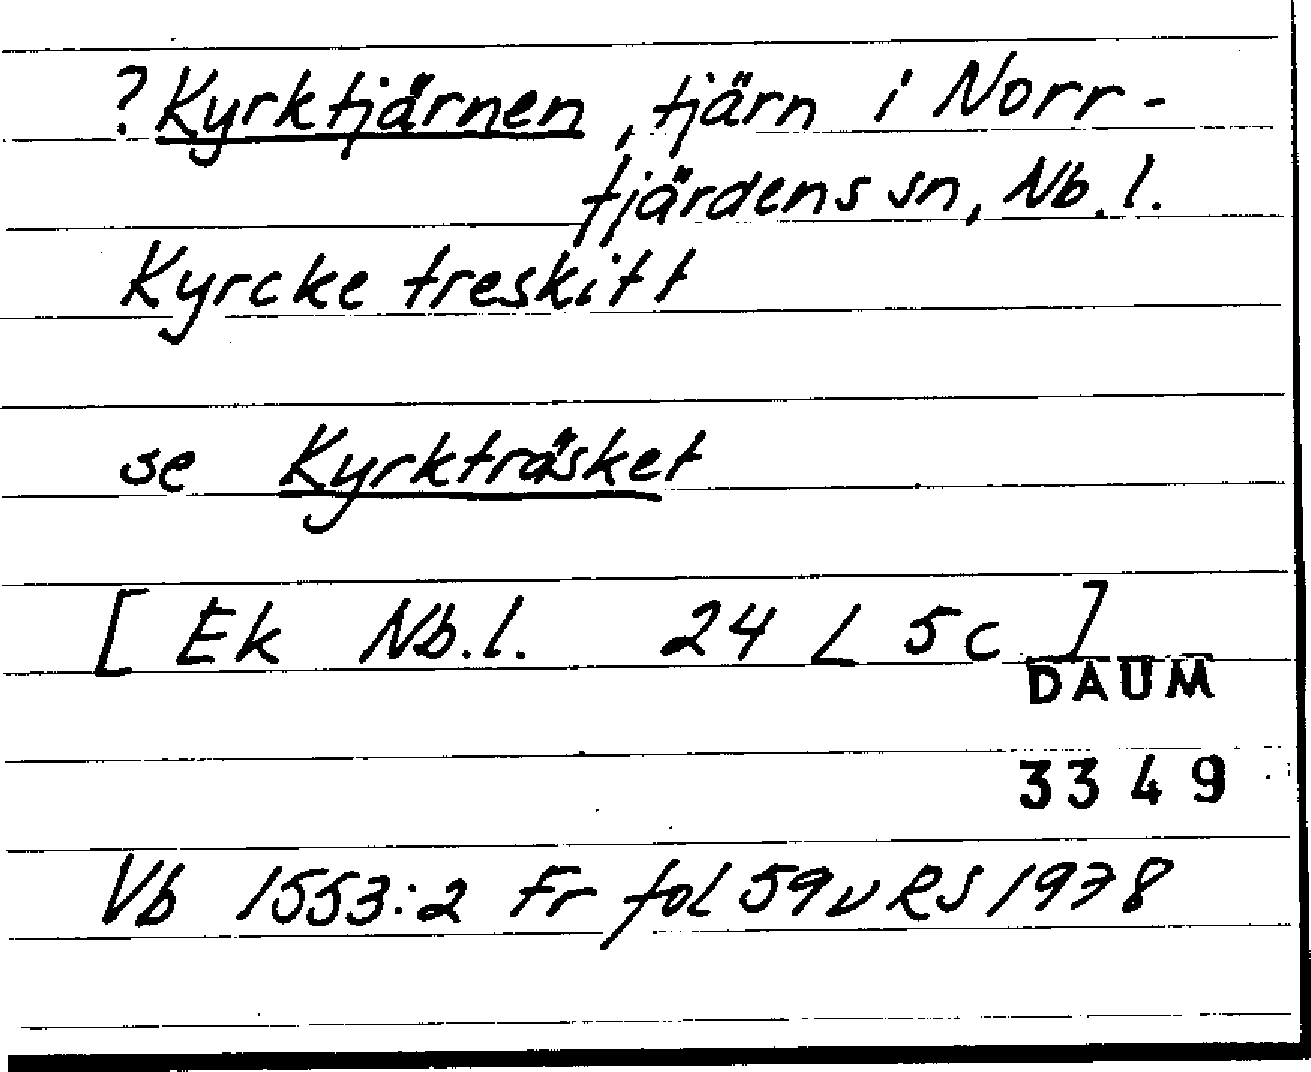 ?Kyrktjärnen, tjärn i Norr-
fjärdens sn, Nb.l.
Kyrcke treskitt
se Kyrkträsket
[Ek Nb.l. 24 L 5c]
DAUM
3349
Vb 1553:2 Fr fol 59v RS 1978